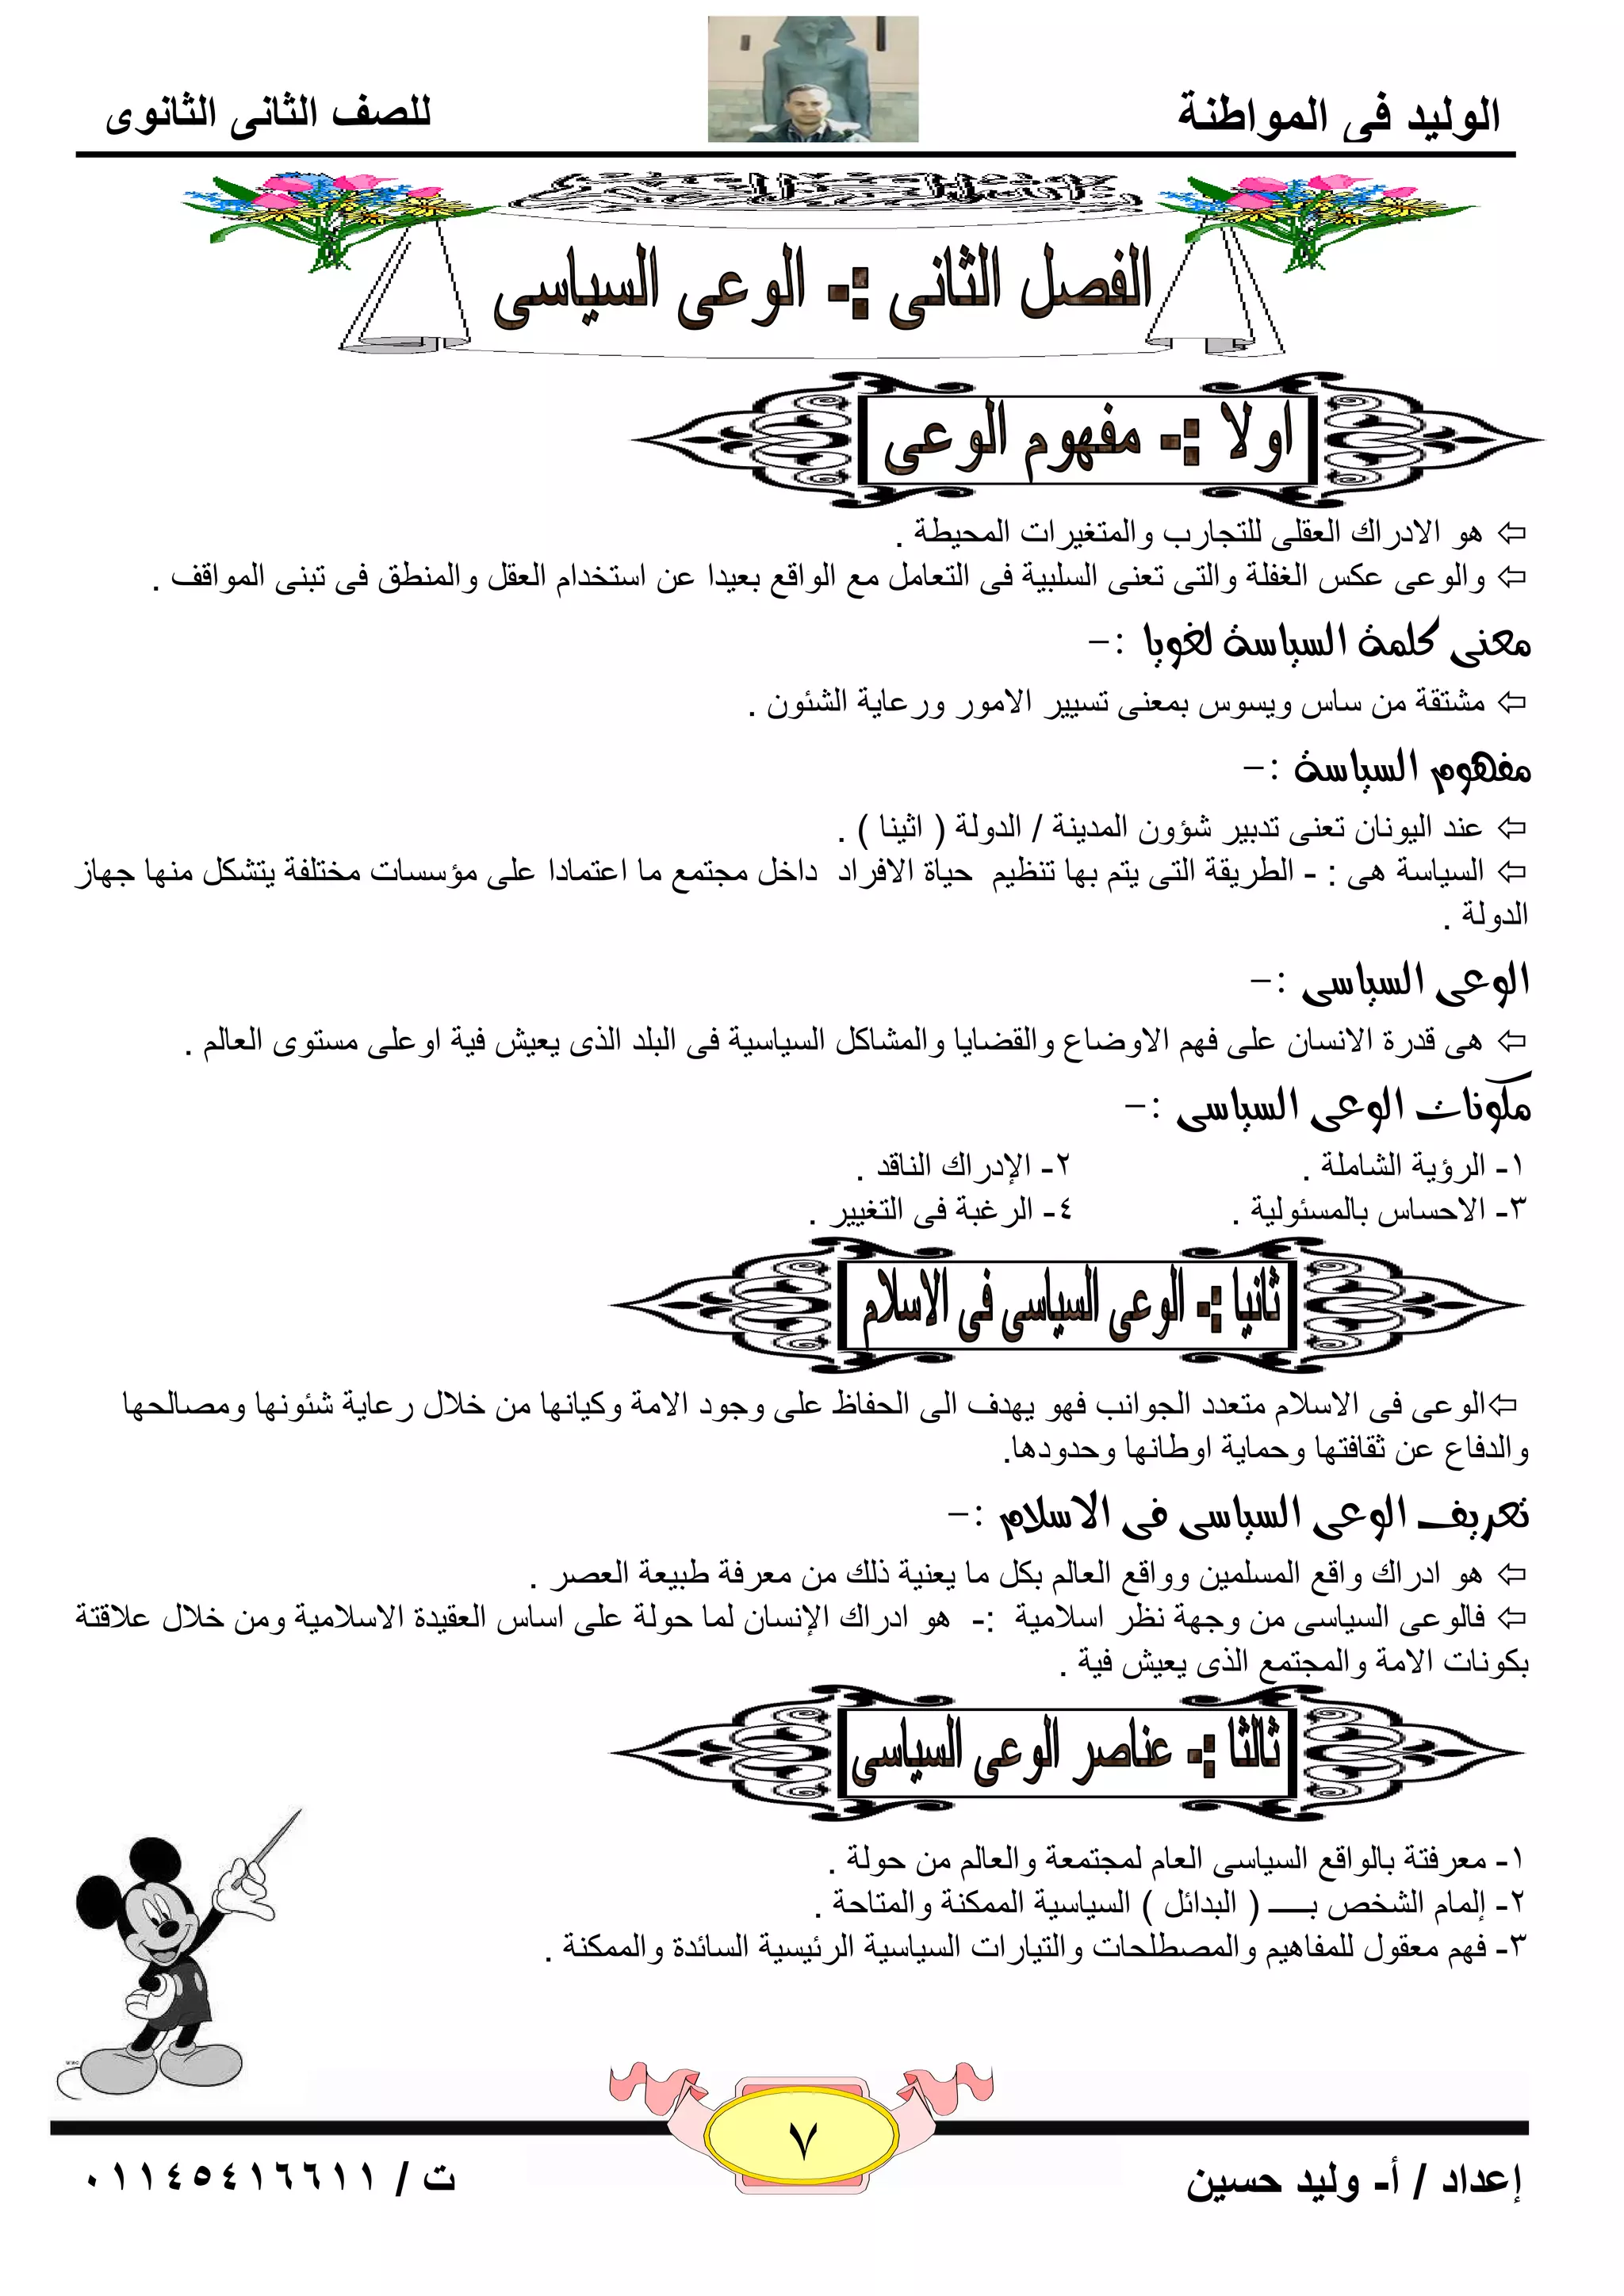 الوليد فى المواطنة
للصف الثانى الثانوى
الفصل الثانى :- الوعى السياسى
اولا :- مفهوم الوعى
⇦ هو الادراك العقلى للتجارب والمتغيرات المحيطة .
⇦ والوعى عكس الغفلة والتى تعنى السلبية فى التعامل مع الواقع بعيدا عن استخدام العقل والمنطق فى تبنى المواقف .
معنى كلمة السياسة لغويا :-
⇦ مشتقة من ساس ويسوس بمعنى تسيير الامور ورعاية الشئون .
مفهوم السياسة :-
⇦ عند اليونان تعنى تدبير شؤون المدينة / الدولة ( اثينا ) .
⇦ السياسة هى : - الطريقة التى يتم بها تنظيم حياة الافراد داخل مجتمع ما اعتمادا على مؤسسات مختلفة يتشكل منها جهاز
الدولة .
الوعى السياسى :-
⇦ هى قدرة الانسان على فهم الاوضاع والقضايا والمشاكل السياسية فى البلد الذى يعيش فية اوعلى مستوى العالم .
مكونات الوعى السياسى :-
١- الرؤية الشاملة . ٢- الإدراك الناقد .
٣- الاحساس بالمسئولية . ٤- الرغبة فى التغيير .
ثانيا :- الوعى السياسى فى الاسلام
⇦الوعى فى الاسلام متعدد الجوانب فهو يهدف الى الحفاظ على وجود الامة وكيانها من خلال رعاية شئونها ومصالحها
والدفاع عن ثقافتها وحماية اوطانها وحدودها.
تعريف الوعى السياسى فى الاسلام :-
⇦ هو ادراك واقع المسلمين وواقع العالم بكل ما يعنية ذلك من معرفة طبيعة العصر .
⇦ فالوعى السياسى من وجهة نظر اسلامية :- هو ادراك الإنسان لما حولة على اساس العقيدة الاسلامية ومن خلال علاقتة
بكونات الامة والمجتمع الذى يعيش فية .
ثالثا :- عناصر الوعى السياسى
١- معرفتة بالواقع السياسى العام لمجتمعة والعالم من حولة .
٢- إلمام الشخص بـــــ ( البدائل ) السياسية الممكنة والمتاحة .
٣- فهم معقول للمفاهيم والمصطلحات والتيارات السياسية الرئيسية السائدة والممكنة .
٧
إعداد / أ- وليد حسين
ت / ٠١١٤٥٤١٦٦١١